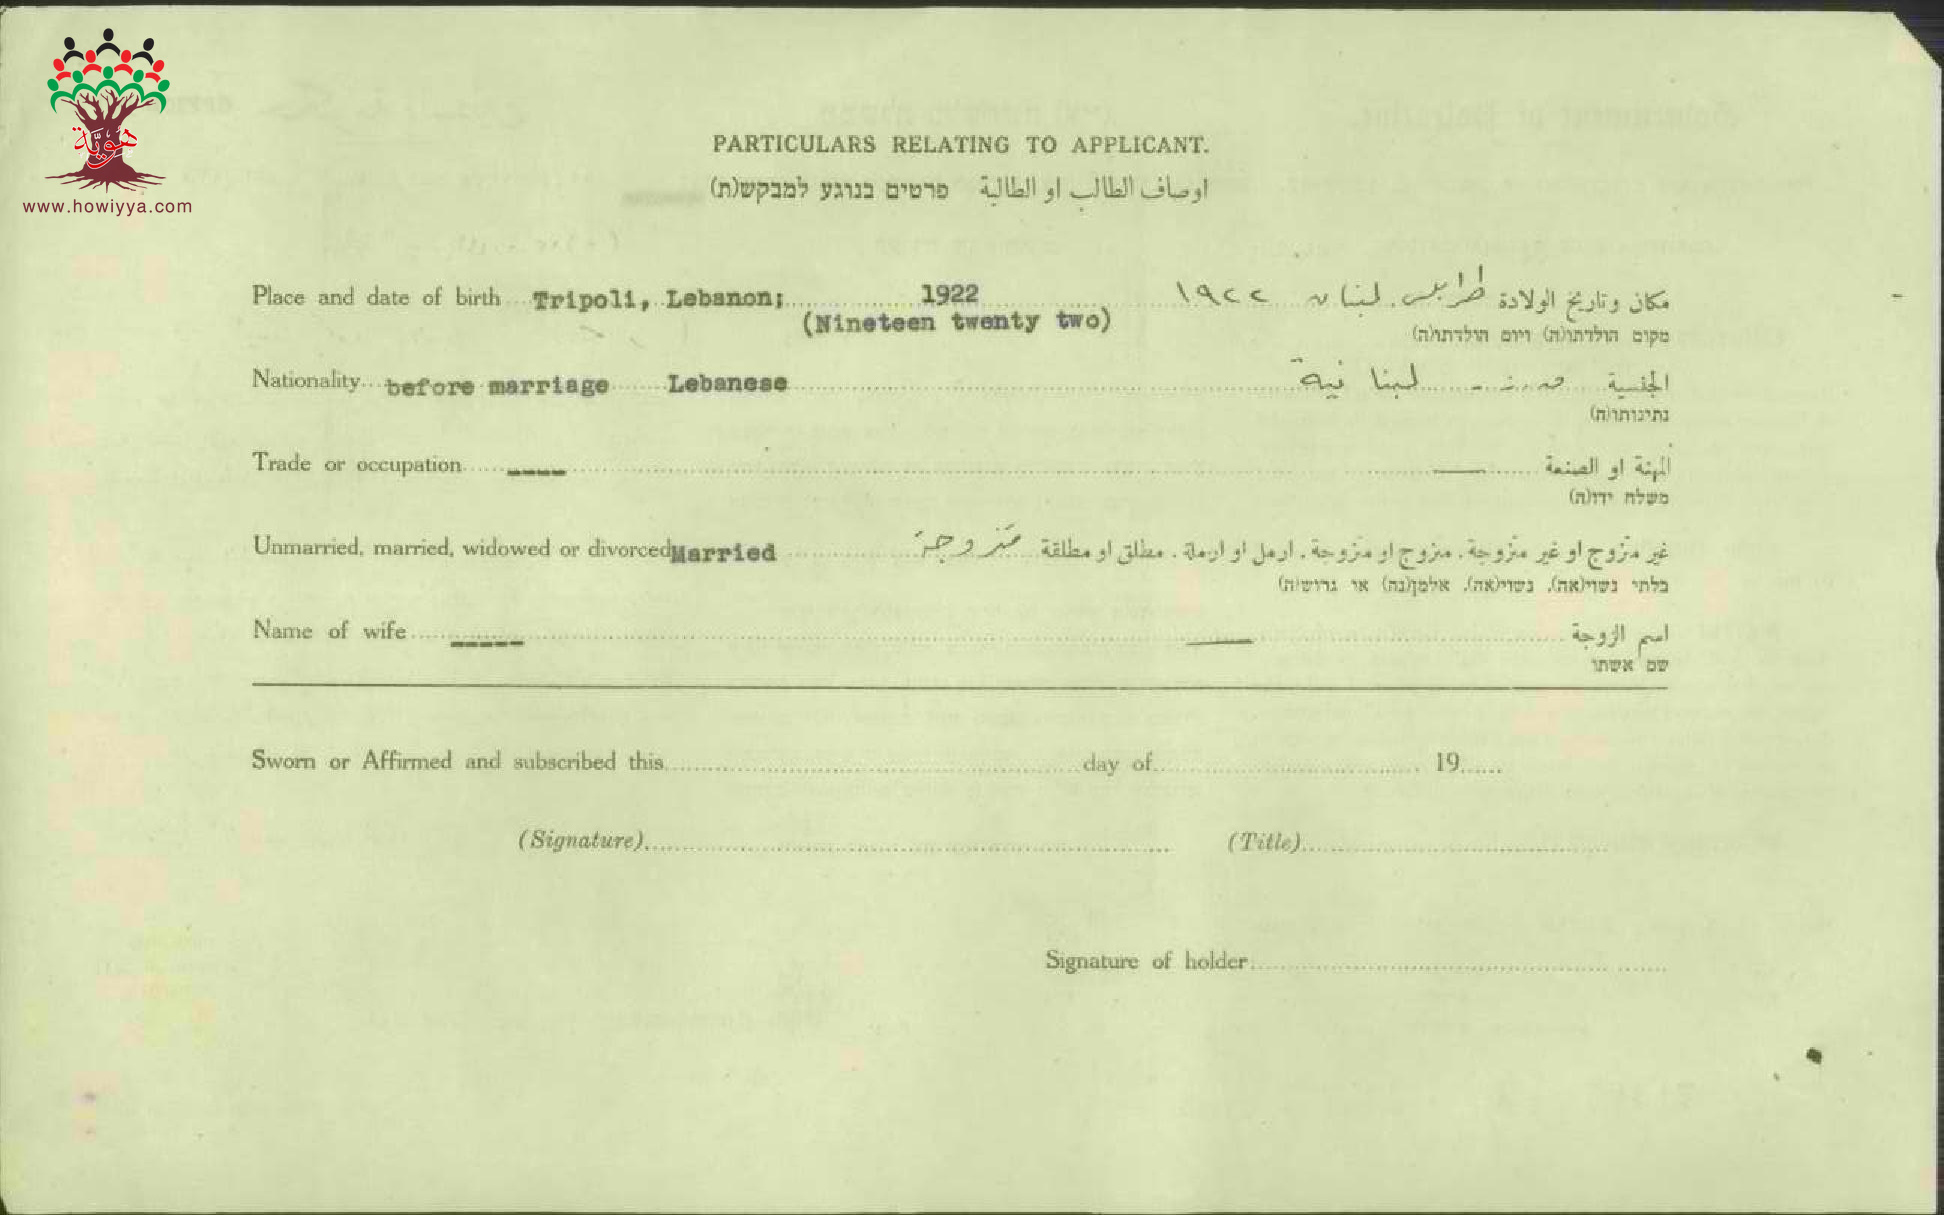 هوية
www.howiyya.com
PARTICULARS RELATING TO APPLICANT.
اوصاف الطالب او الطالبة פרטים בנוגע למבקש(ת)
Place and date of birth Tripoli, Lebanon; 1922 مكان وتاريخ الولادة طرابلس. لبنان ١٩٢٢
(Nineteen twenty two)
מקום הולדתו(ה) ויום הולדתו(ה)
Nationality before marriage Lebanese الجنسية لبنانية
נתינותו(ה)
Trade or occupation ---- المهنة او الصنعة —
משלח ידו(ה)
Unmarried, married, widowed or divorced Married غير متزوج او غير متزوجة. متزوج او متزوجة. ارمل او ارملة. مطلق او مطلقة متزوجة
בלתי נשוי(אה), נשוי(אה), אלמן(נה) או גרוש(ה)
Name of wife ----- اسم الزوجة —
שם אשתו
Sworn or Affirmed and subscribed this day of 19
(Signature) (Title)
Signature of holder